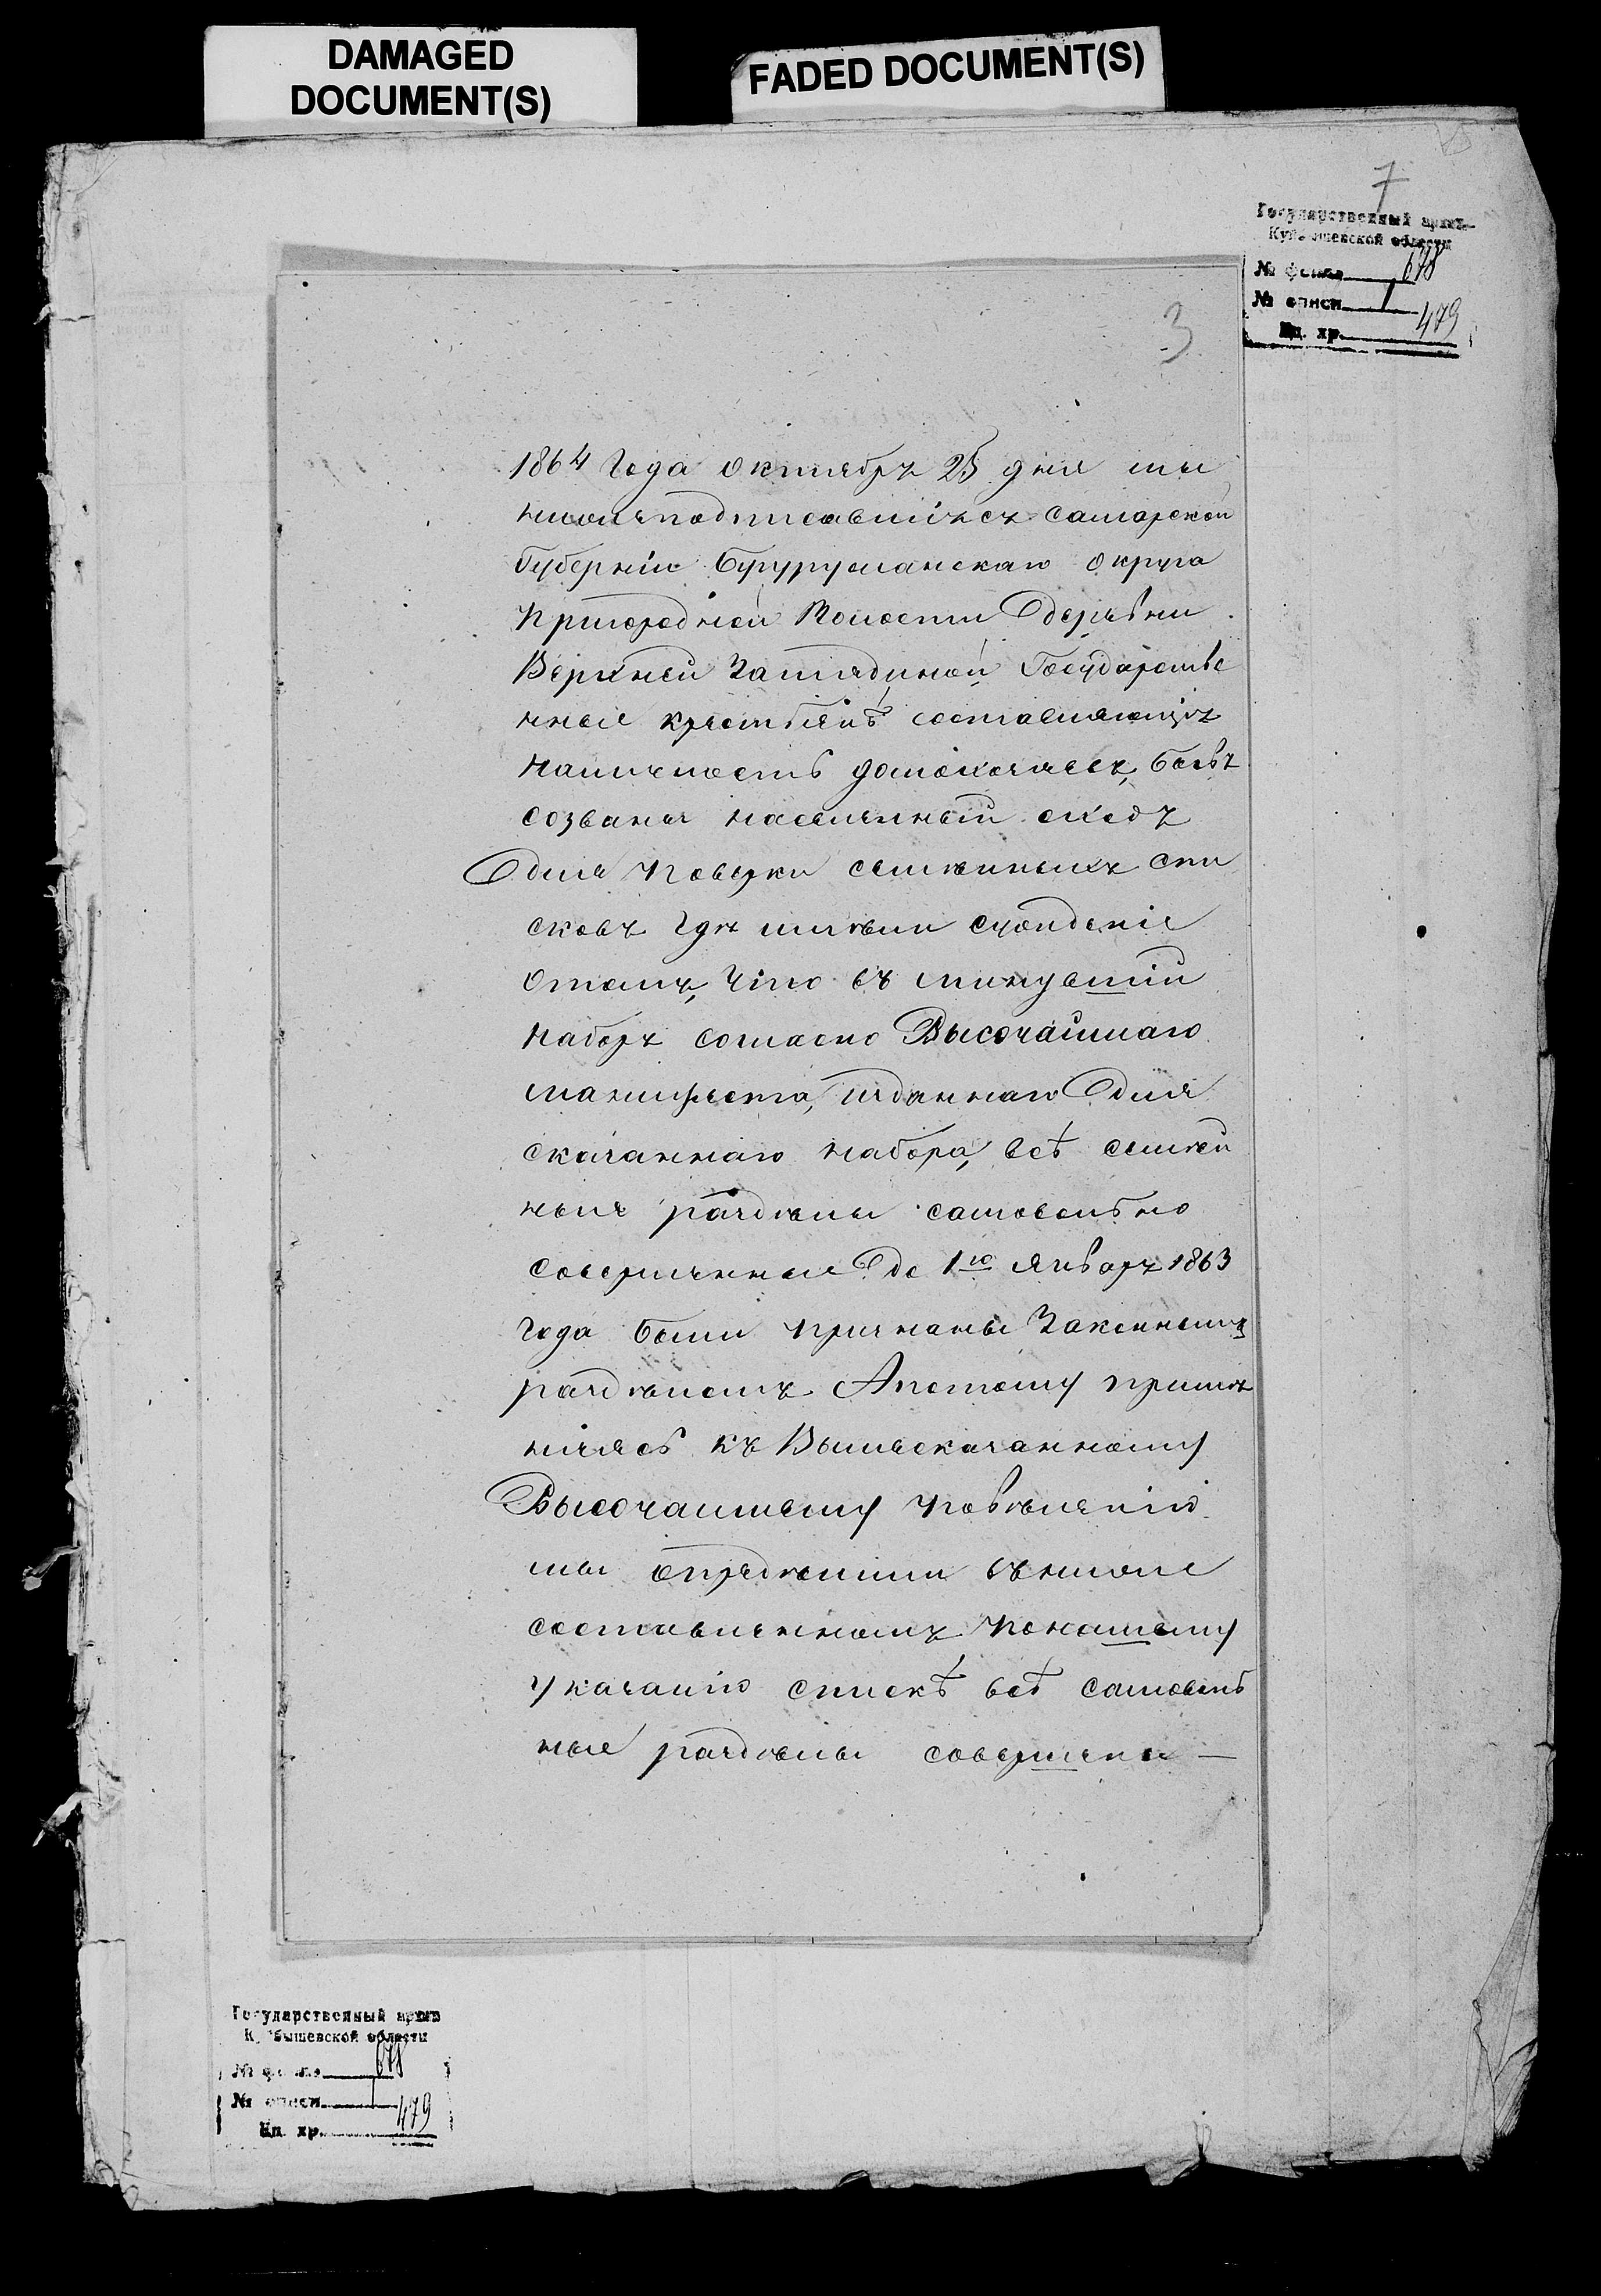 DAMAGED
DOCUMENT(S)
FADED DOCUMENT(S)
7
Государственный архив
Куйбышевской области
№ фонда 678
№ описи 1
Ед. хр. 479
3
1864 Года Октябръ 25 дня мы
нижеподписавшихсъ Самарской
Губерніи Бугурусланскаго Округа
Пригородней Волости Деревни
Верхней Государстве
нные крестьянъ составляющихъ
домохозяевъ, бывъ
созваны насельный сходъ
Для поверки семейныхъ спи
сковъ Где имѣли сужденіе
Отомъ, Что въ минувшіи
Наборъ согласно Высочайшаго
манифеста, изданнаго Для
сказаннаго набора, всѣ семей
ные раздѣлы самовольно
совершенные До 1го Январъ 1863
года были признаны Законнымъ
раздѣломъ. Апотому примѣ
няясь къ Вышесказанному
Высочаишему повѣленію
мы опредѣлили въ ниже
составленномъ понашему
указанію спискѣ всѣ самоволь
ные раздѣлы совершени —
Государственный архив
Куйбышевской области
№ фонда 678
№ описи 1
Ед. хр. 479